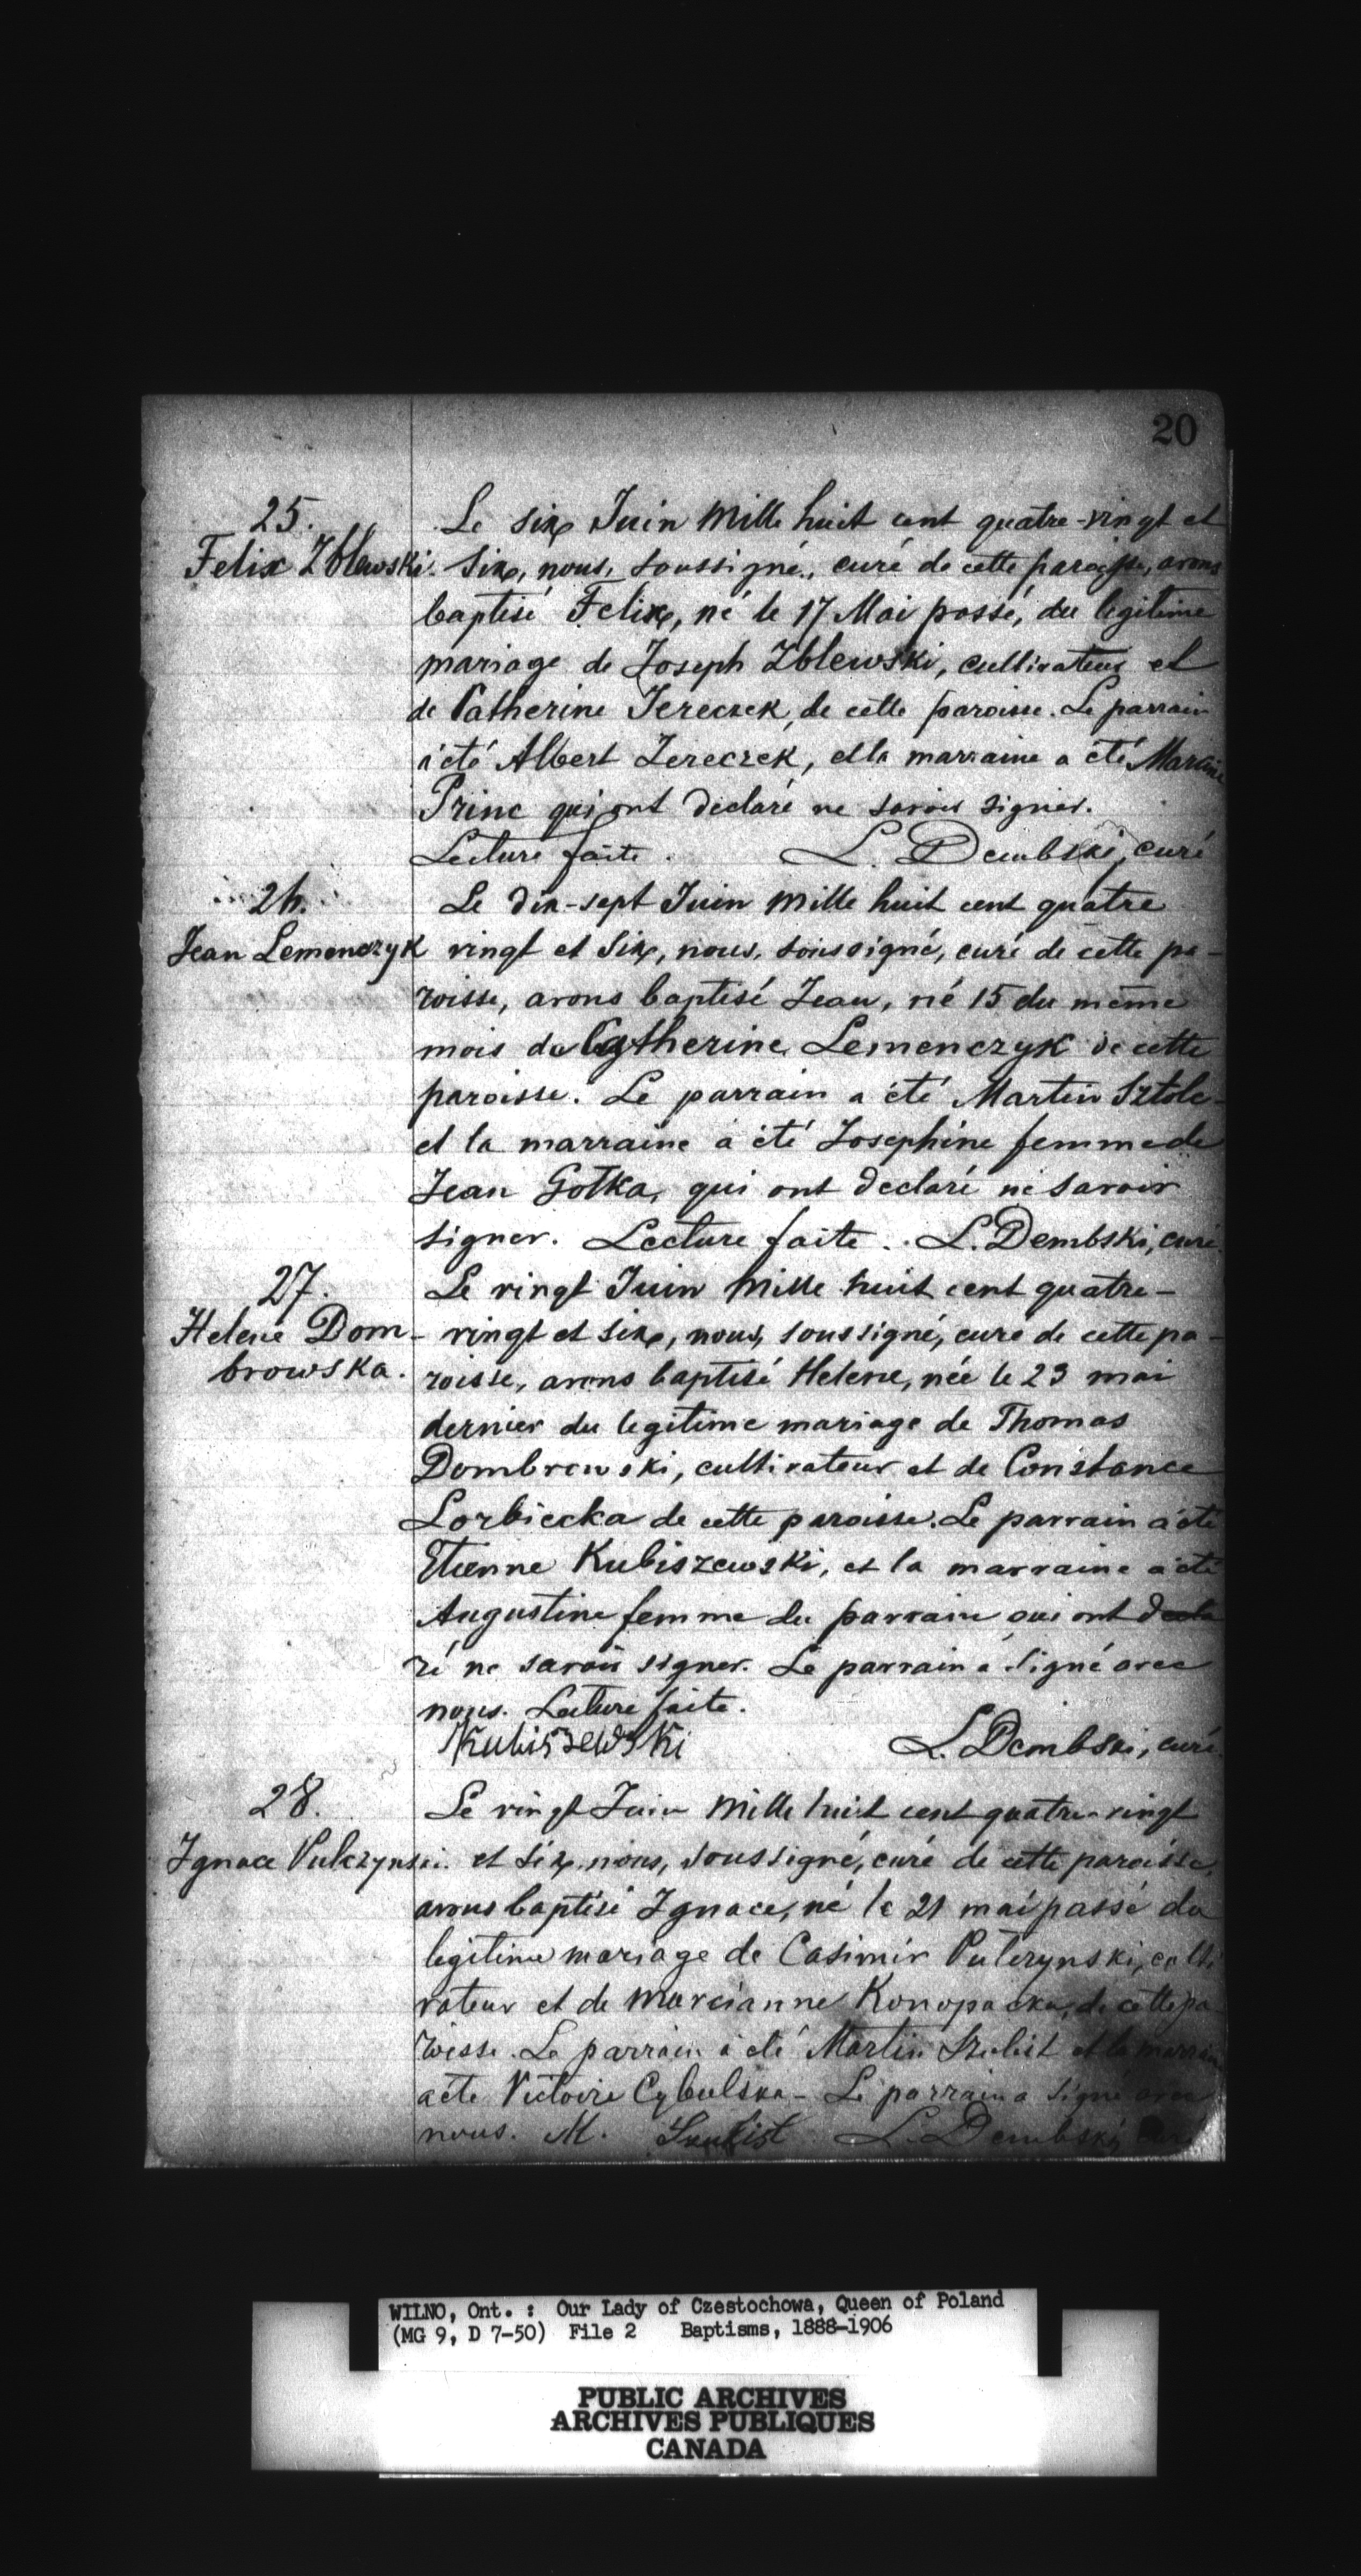 20
25.
Felix Zblewski.
Le six Juin mille huit cent quatre-vingt et
six, nous, soussigné, curé de cette paroisse, avons
baptisé Felix, né le 17 Mai passé, du legitime
mariage de Joseph Zblewski, cultivateur et
de Catherine Jereczek, de cette paroisse. Le parrain
a été Albert Jereczek, et la marraine a été
Princ qui ont declaré ne savoir signer.
Lecture faite. L. Dembski, curé
26.
Jean Lemenczyk
Le dix-sept Juin mille huit cent quatre
vingt et six, nous, soussigné, curé de cette pa-
roisse, avons baptisé Jean, né 15 du même
mois de Catherine Lemenczyk de cette
paroisse. Le parrain a été Martin Sztolc
et la marraine a été Josephine femme de
Jean Gotka, qui ont declaré ne savoir
signer. Lecture faite. L. Dembski, curé.
27.
Helene Dom-
browska.
Le vingt Juin mille huit cent quatre-
vingt et six, nous, soussigné, curé de cette pa-
roisse, avons baptisé Helene, née le 23 mai
dernier du legitime mariage de Thomas
Dombrowski, cultivateur et de Constance
Lorbiecka de cette paroisse. Le parrain a été
Etienne Kubiszewski, et la marraine a été
Augustine femme du parrain qui ont decla
ré ne savoir signer. Le parrain a signé avec
nous. Lecture faite.
Kubiszewski L. Dembski, curé.
28.
Ignace Pulczynski.
Le vingt Juin mille huit cent quatre-vingt
et six, nous, soussigné, curé de cette paroisse,
avons baptisé Ignace, né le 21 mai passé du
legitime mariage de Casimir Pulczynski, culti
vateur et de Marcianne Konopacka, de cette pa
roisse. Le parrain a été Martin Szulist et la marraine
a été Victoire Cybulska - Le parrain a signé avec
nous. M. Szulist L. Dembski, curé
WILNO, Ont. : Our Lady of Czestochowa, Queen of Poland
(MG 9, D 7-50) File 2 Baptisms, 1888-1906
PUBLIC ARCHIVES
ARCHIVES PUBLIQUES
CANADA